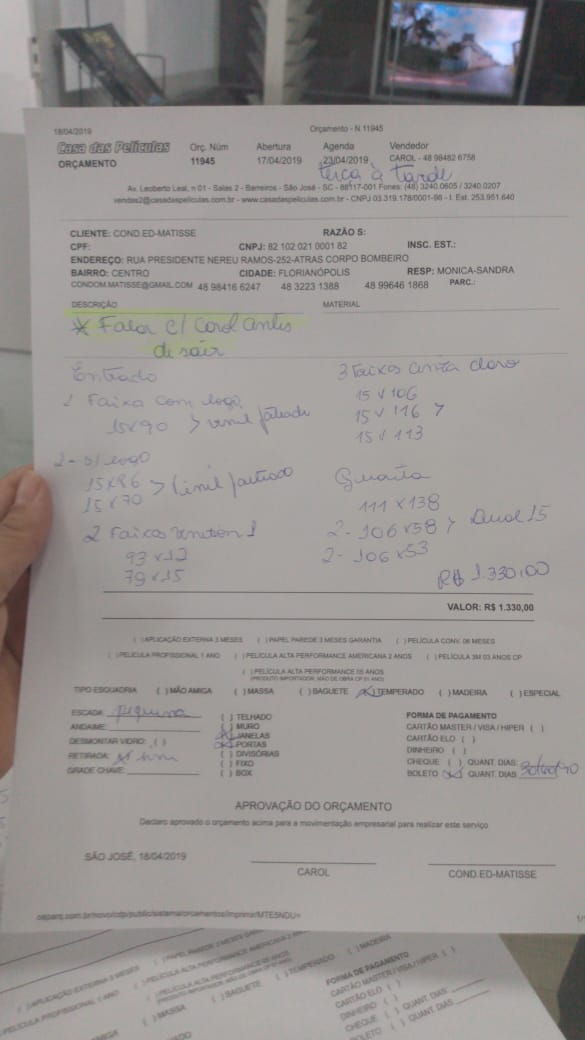 18/04/2019
Orçamento - N 11945
Casa das Películas
ORÇAMENTO
Orç. Núm
11945
Abertura
17/04/2019
Agenda
23/04/2019
terça à tarde
Vendedor
CAROL - 48 98482 6758
Av. Leoberto Leal, n 01 - Salas 2 - Barreiros - São José - SC - 88117-001 Fones: (48) 3240.0605 / 3240.0207
vendas2@casadaspeliculas.com.br - www.casadaspeliculas.com.br - CNPJ 03.319.178/0001-96 - I. Est. 253.951.640
CLIENTE: COND.ED-MATISSE RAZÃO S:
CPF: CNPJ: 82 102 021 0001 82 INSC. EST.:
ENDEREÇO: RUA PRESIDENTE NEREU RAMOS-252-ATRAS CORPO BOMBEIRO
BAIRRO: CENTRO CIDADE: FLORIANÓPOLIS RESP: MONICA-SANDRA
CONDOM.MATISSE@GMAIL.COM 48 98416 6247 48 3223 1388 48 99646 1868 PARC.:
DESCRIÇÃO MATERIAL
* Falar c/ Carol antes
de sair
Entrada
2 Faixa com logo
15x90 > vinil jateado
2 - s/ logo
15x86 > vinil jateado
15x70
2 Faixas
93 x 12
79 x 15
3 Faixas cinza claro
15 x 106
15 x 116 >
15 x 113
Guarita
111 x 138
2 - 106 x 58 > Dual 15
2 - 106 x 53
R$ 1.330,00
VALOR: R$ 1.330,00
( ) APLICAÇÃO EXTERNA 3 MESES ( ) PAPEL PAREDE 3 MESES GARANTIA ( ) PELÍCULA CONV. 06 MESES
( ) PELÍCULA PROFISSIONAL 1 ANO ( ) PELÍCULA ALTA PERFORMANCE AMERICANA 2 ANOS ( ) PELÍCULA 3M 03 ANOS CP
( ) PELÍCULA ALTA PERFORMANCE 05 ANOS
(PRODUTO IMPORTADOR, MÃO DE OBRA CP 01 ANO)
TIPO ESQUADRIA ( ) MÃO AMIGA ( ) MASSA ( ) BAGUETE (x) TEMPERADO ( ) MADEIRA ( ) ESPECIAL
ESCADA: pequena
ANDAIME:
DESMONTAR VIDRO: ( )
RETIRADA: x sim
GRADE CHAVE:
( ) TELHADO
( ) MURO
(x) JANELAS
(x) PORTAS
( ) DIVISÓRIAS
( ) FIXO
( ) BOX
FORMA DE PAGAMENTO
CARTÃO MASTER / VISA / HIPER ( )
CARTÃO ELO ( )
DINHEIRO ( )
CHEQUE ( ) QUANT. DIAS:
BOLETO (x) QUANT. DIAS:
APROVAÇÃO DO ORÇAMENTO
Declaro aprovado o orçamento acima para a movimentação empresarial para realizar este serviço
SÃO JOSÉ, 18/04/2019
CAROL
COND.ED-MATISSE
osparq.com.br/novo/cdp/public/sistema/orcamentos/imprimir/MTE5NDU=
1/
( ) APLICAÇÃO EXTERNA 3 MESES
( ) PELÍCULA PROFISSIONAL 1 ANO
( ) PELÍCULA ALTA PERFORMANCE AMERICANA 2 ANOS
( ) PELÍCULA ALTA PERFORMANCE 05 ANOS
(PRODUTO IMPORTADOR, MÃO DE OBRA CP 01 ANO)
( ) MASSA ( ) BAGUETE ( ) TEMPERADO ( ) MADEIRA
FORMA DE PAGAMENTO
CARTÃO MASTER / VISA / HIPER ( )
CARTÃO ELO ( )
DINHEIRO ( )
CHEQUE ( ) QUANT. DIAS
BOLETO ( ) QUANT. DIAS